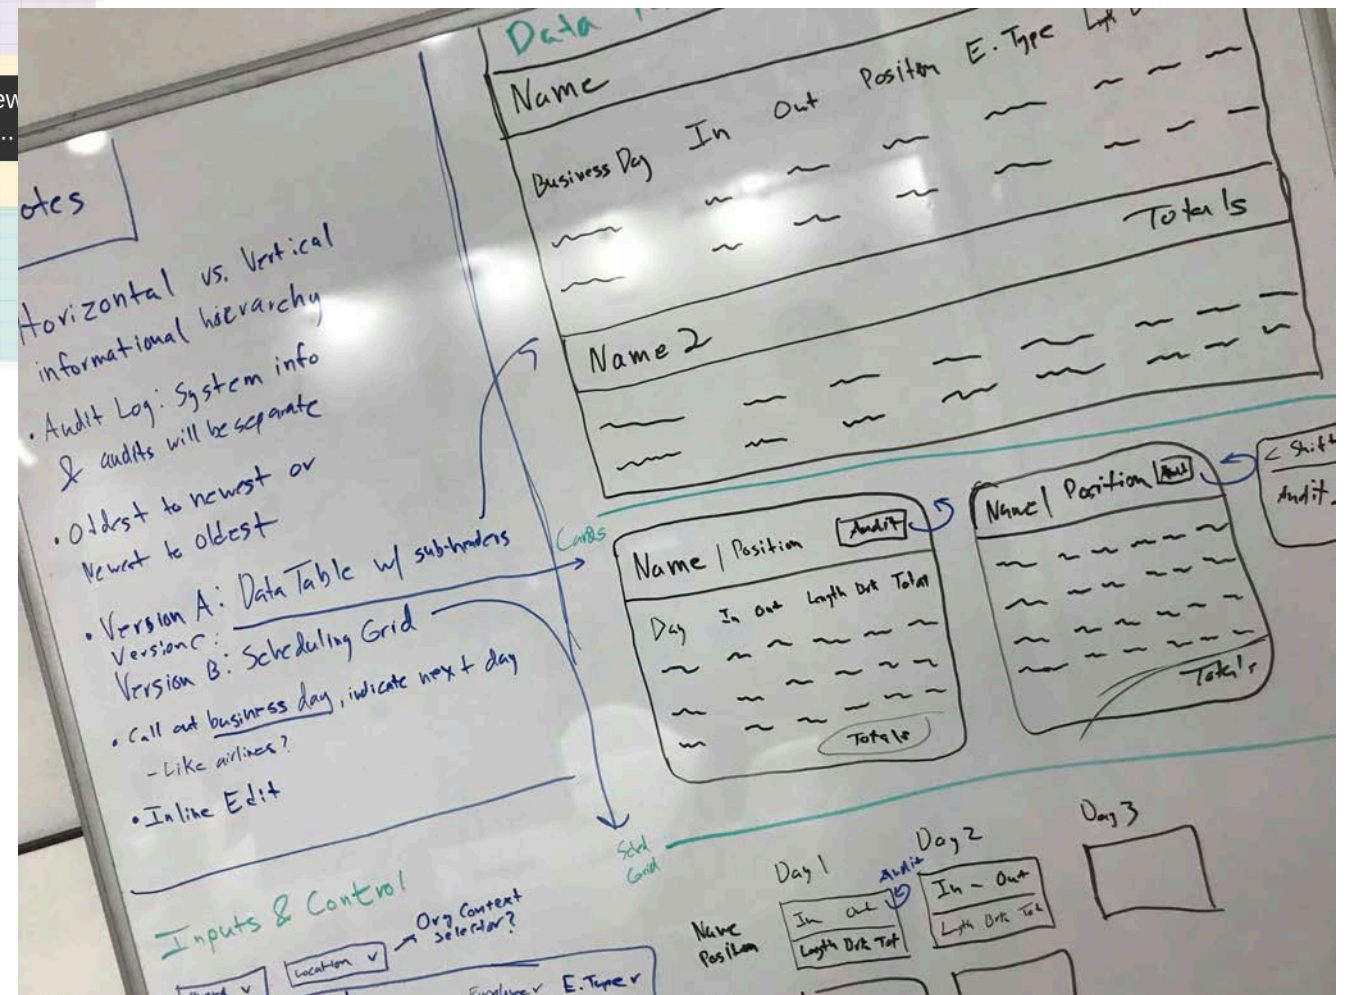 otes
Horizontal vs. Vertical
informational hierarchy
• Audit Log: System info
& audits will be separate
• Oldest to newest or
Newest to oldest
• Version A: Data Table w/ subheaders
Version C:
Version B: Scheduling Grid
• Call out business day, indicate next day
- Like airlines?
• Inline Edit
Inputs & Control
Org Context
Selector?
Location v
Employee v E.Type v
Data
Name
Business Day In Out Position E. Type
Totals
Name 2
Cards
Name | Position Audit
Day In Out Length Brk Total
Totals
Name | Position
Totals
< Shift
Audit
Sched
Grid
Day 1 Day 2 Day 3
Audit
Name
Position
In Out
Length Brk Tot
In - Out
Lgth Brk Tot